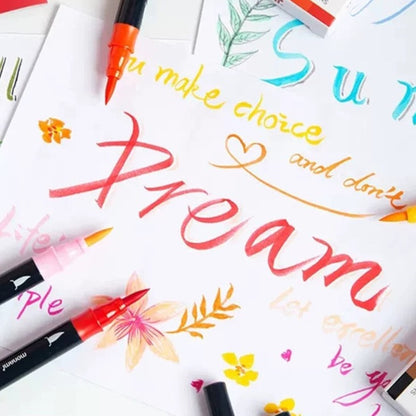 Sun
you make choice
and don't
Dream
Life
ple
Let excellen
be yo
monami